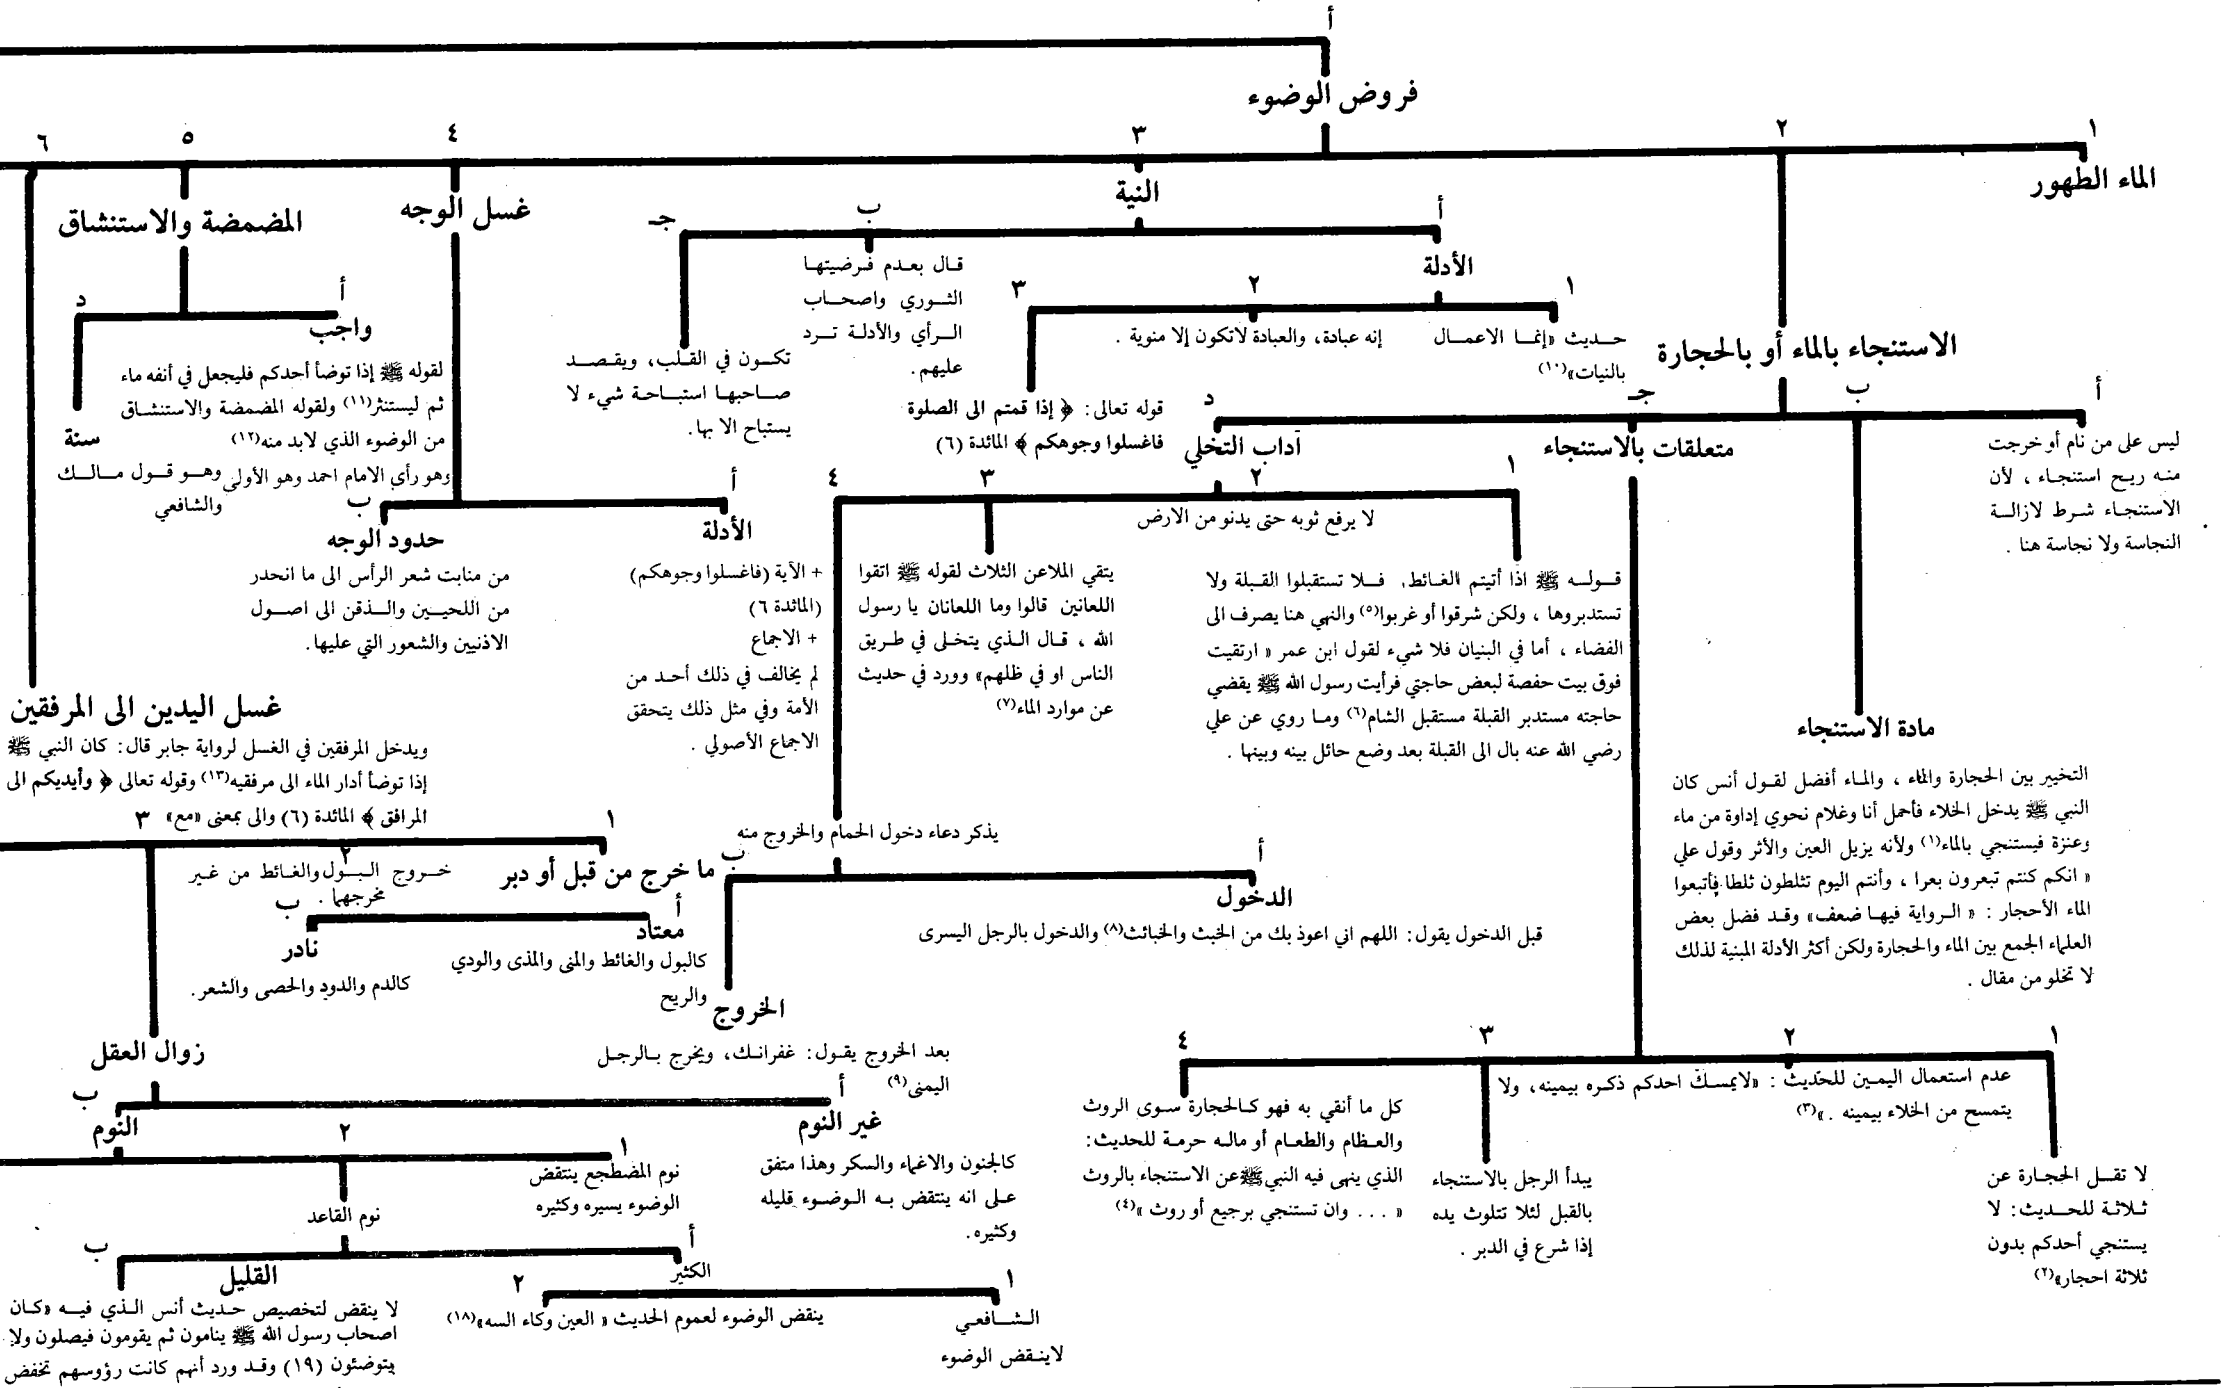 أ
فروض الوضوء
١
الماء الطهور
٢
الاستنجاء بالماء أو بالحجارة
أ
ليس على من نام أو خرجت
منه ريح استنجاء ، لأن
الاستنجاء شرط لازالة
النجاسة ولا نجاسة هنا .
ب
مادة الاستنجاء
التخيير بين الحجارة والماء ، والماء أفضل لقول أنس كان
النبي ﷺ يدخل الخلاء فأحمل أنا وغلام نحوي إداوة من ماء
وعنزة فيستنجي بالماء(١) ولأنه يزيل العين والأثر وقول علي
« انكم كنتم تبعرون بعرا ، وأنتم اليوم تثلطون ثلطا فأتبعوا
الماء الأحجار : « الرواية فيها ضعف» وقد فضل بعض
العلماء الجمع بين الماء والحجارة ولكن أكثر الأدلة المبنية لذلك
لا تخلو من مقال .
جـ
متعلقات بالاستنجاء
١
لا تقل الحجارة عن
ثلاثة للحديث: لا
يستنجي أحدكم بدون
ثلاثة احجار»(٢)
٢
عدم استعمال اليمين للحديث : «لايمسك احدكم ذكره بيمينه، ولا
يتمسح من الخلاء بيمينه .»(٣)
٣
يبدأ الرجل بالاستنجاء
بالقبل لئلا تتلوث يده
إذا شرع في الدبر .
٤
كل ما أنقي به فهو كالحجارة سوى الروث
والعظام والطعام أو ماله حرمة للحديث:
الذي ينهى فيه النبي ﷺ عن الاستنجاء بالروث
« . . . وان تستنجي برجيع أو روث »(٤)
د
اداب التخلي
١
قوله ﷺ اذا أتيتم الغائط, فلا تستقبلوا القبلة ولا
تستدبروها ، ولكن شرقوا أو غربوا(٥) والنهي هنا يصرف الى
الفضاء ، أما في البنيان فلا شيء لقول ابن عمر « ارتقيت
فوق بيت حفصة لبعض حاجتي فرأيت رسول الله ﷺ يقضي
حاجته مستدبر القبلة مستقبل الشام(٦) وما روي عن علي
رضي الله عنه بال الى القبلة بعد وضع حائل بينه وبينها .
٢
لا يرفع ثوبه حتى يدنو من الارض
٣
يتقي الملاعن الثلاث لقوله ﷺ اتقوا
اللعانين قالوا وما اللعانان يا رسول
الله ، قال الذي يتخلى في طريق
الناس او في ظلهم» وورد في حديث
عن موارد الماء(٧)
٤
يذكر دعاء دخول الحمام والخروج منه
أ
الدخول
قبل الدخول يقول: اللهم اني اعوذ بك من الخبث والخبائث(٨) والدخول بالرجل اليسرى
ب
الخروج
بعد الخروج يقول: غفرانك، ويخرج بالرجل
اليمنى(٩)
٣
النية
أ
الأدلة
١
حديث «إنما الاعمال
بالنيات»(١٠)
٢
إنه عبادة، والعبادة لاتكون إلا منوية .
٣
قوله تعالى: ﴿ إذا قمتم الى الصلوة
فاغسلوا وجوهكم ﴾ المائدة (٦)
ب
قال بعدم فرضيتها
الثوري واصحاب
الرأي والأدلة ترد
عليهم.
جـ
تكون في القلب، ويقصد
صاحبها استباحة شيء لا
يستباح الا بها.
٤
غسل الوجه
أ
الأدلة
+ الآية (فاغسلوا وجوهكم)
(المائدة ٦)
+ الاجماع
لم يخالف في ذلك أحد من
الأمة وفي مثل ذلك يتحقق
الاجماع الأصولي .
ب
حدود الوجه
من منابت شعر الرأس الى ما انحدر
من اللحيين والذقن الى اصول
الاذنيين والشعور التي عليها.
٥
المضمضة والاستنشاق
أ
واجب
لقوله ﷺ إذا توضأ أحدكم فليجعل في أنفه ماء
ثم ليستنثر(١١) ولقوله المضمضة والاستنشاق
من الوضوء الذي لابد منه(١٢)
وهو رأي الامام احمد وهو الأولى
د
سنة
وهو قول مالك
والشافعي
٦
غسل اليدين الى المرفقين
ويدخل المرفقين في الغسل لرواية جابر قال: كان النبي ﷺ
إذا توضأ أدار الماء الى مرفقيه(١٣) وقوله تعالى ﴿ وأيديكم الى
المرافق ﴾ المائدة (٦) والى بمعنى «مع»
١
ما خرج من قبل أو دبر
أ
معتاد
كالبول والغائط والمنى والمذى والودي
والريح
ب
نادر
كالدم والدود والحصى والشعر.
٢
خروج البول والغائط من غير
مخرجهما .
٣
زوال العقل
أ
غير النوم
كالجنون والاغماء والسكر وهذا متفق
على انه ينتقض به الوضوء قليله
وكثيره.
ب
النوم
١
نوم المضطجع ينتقض
الوضوء يسيره وكثيره
٢
نوم القاعد
أ
الكثير
١
الشافعي
لاينقض الوضوء
٢
ينقض الوضوء لعموم الحديث « العين وكاء السه»(١٨)
ب
القليل
لا ينقض لتخصيص حديث أنس الذي فيه «كان
اصحاب رسول الله ﷺ ينامون ثم يقومون فيصلون ولا
يتوضئون (١٩) وقد ورد أنهم كانت رؤوسهم تخفض